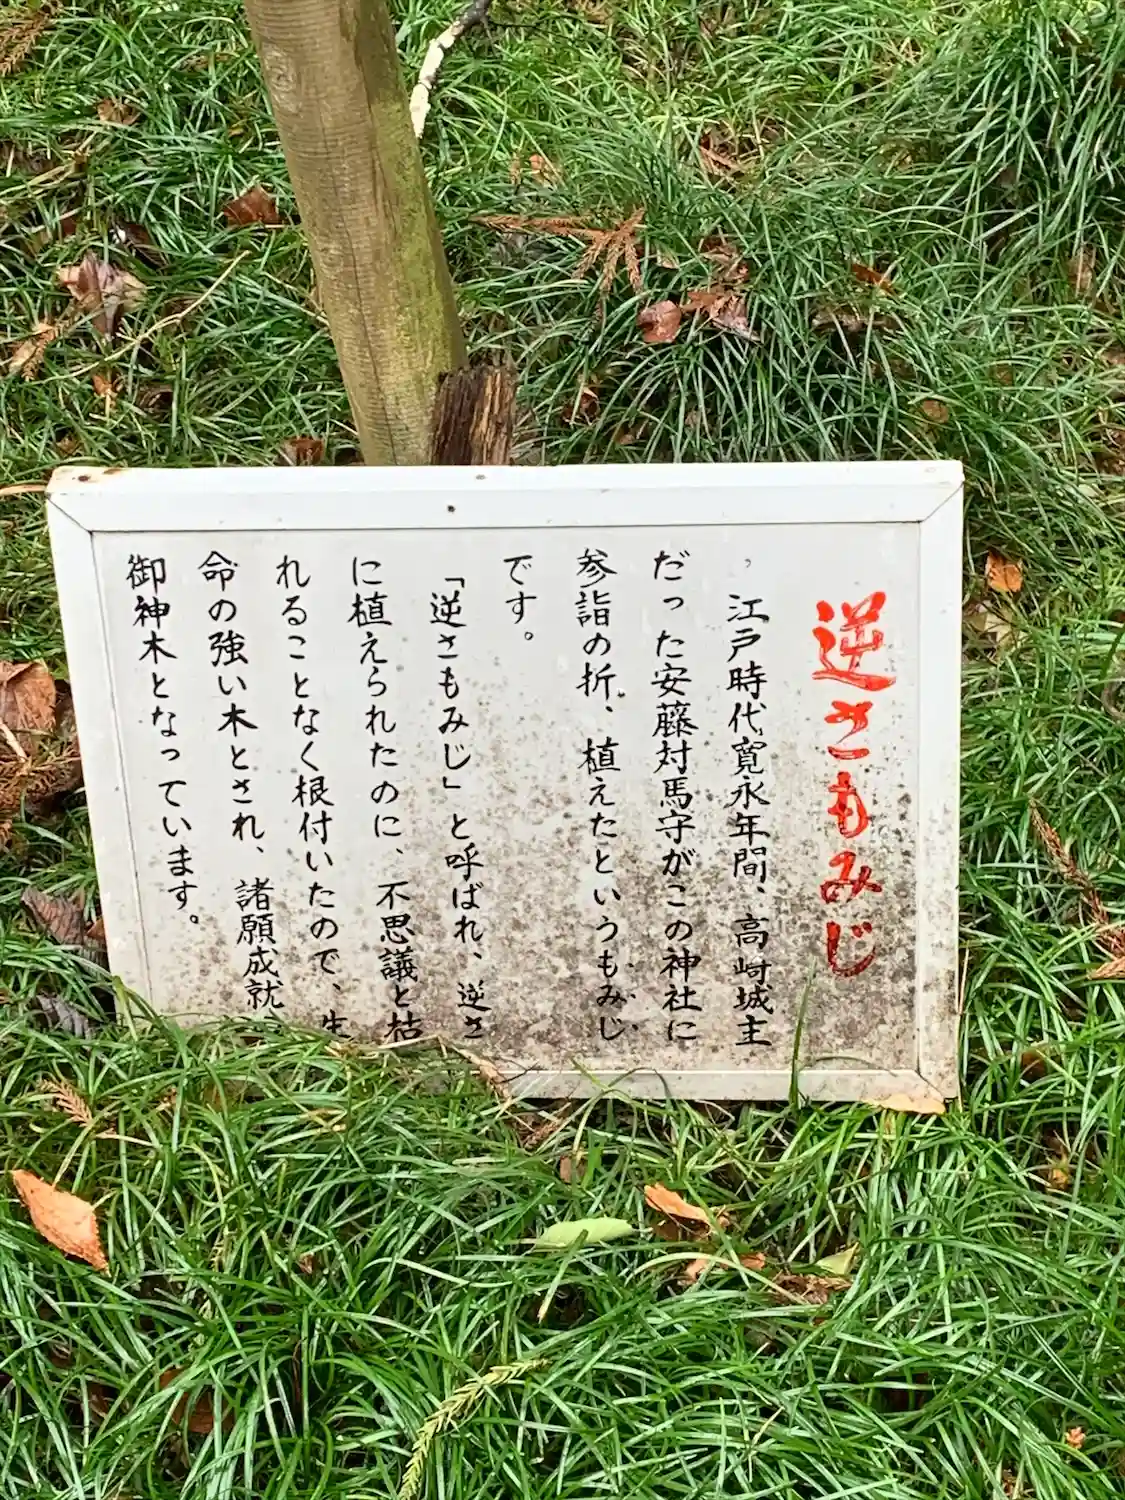 逆さもみじ
江戸時代、寛永年間、高崎城主
だった安藤対馬守がこの神社に
参詣の折、植えたというもみじ
です。
「逆さもみじ」と呼ばれ、逆さ
に植えられたのに、不思議と枯
れることなく根付いたので、生
命の強い木とされ、諸願成就、
御神木となっています。